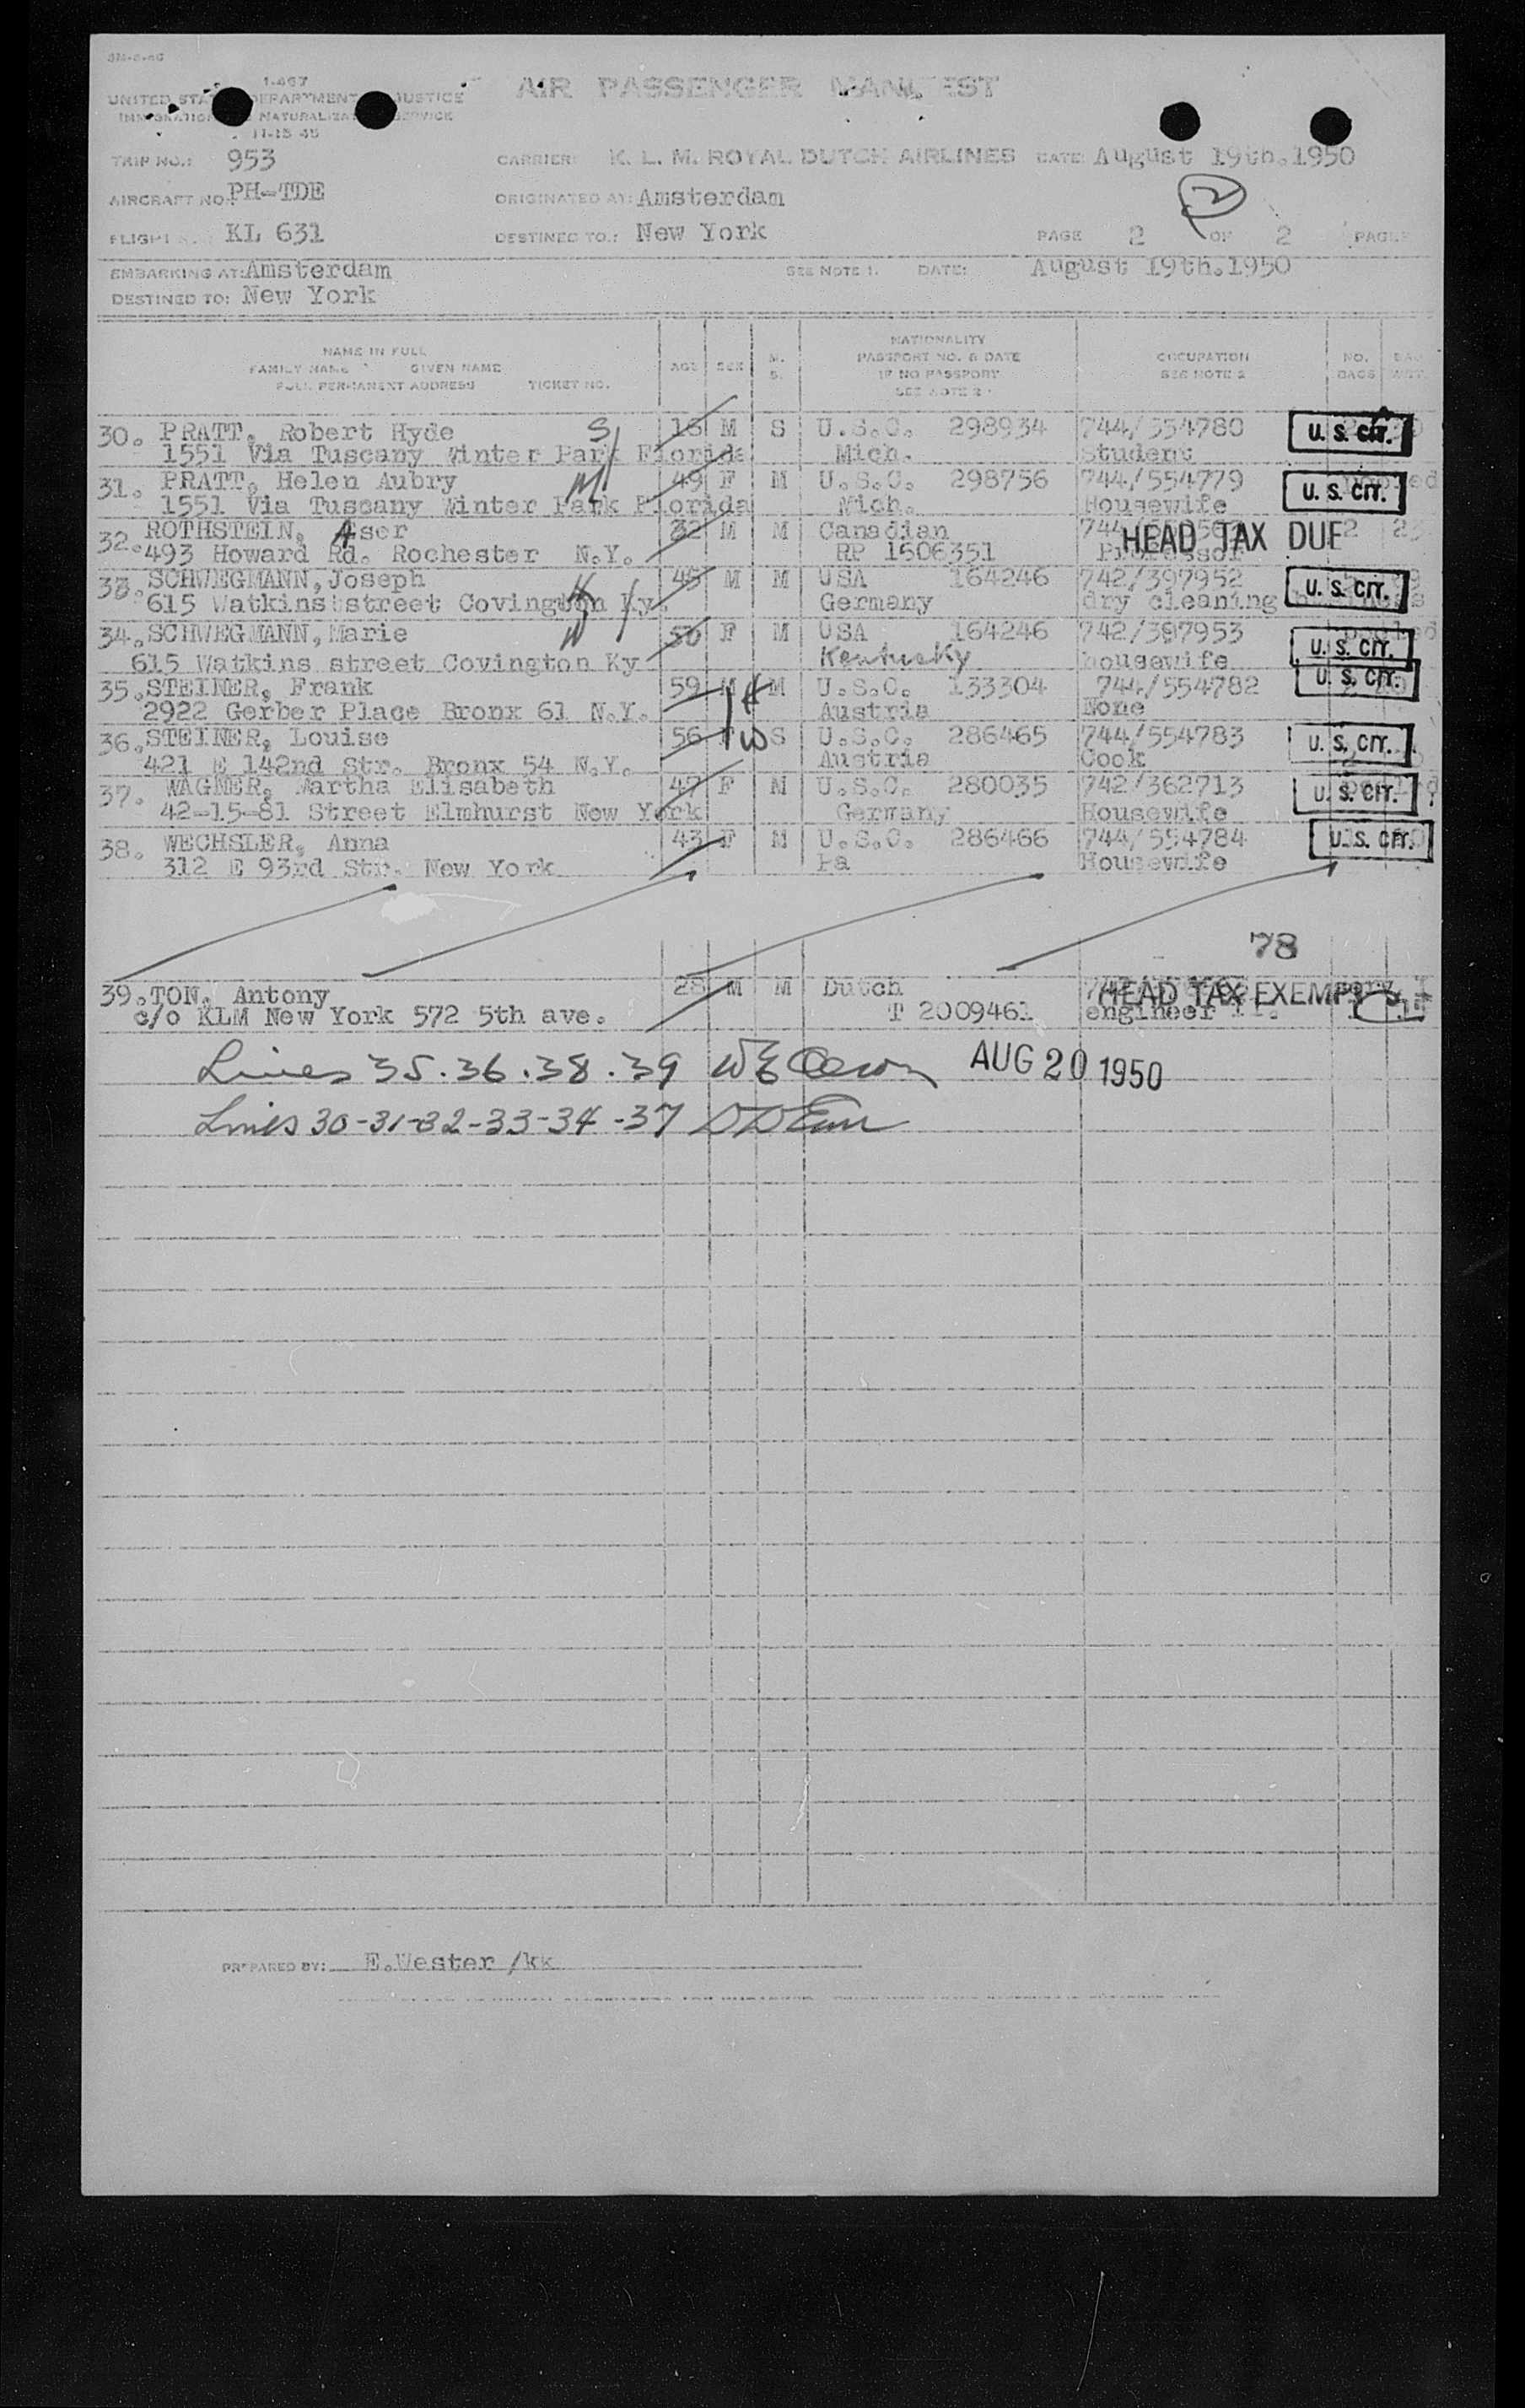 1-467
UNITED STATES DEPARTMENT JUSTICE
IMMIGRATION NATURALIZATION SERVICE
11-15-45
AIR PASSENGER MANIFEST
TRIP NO.: 953 CARRIER: K. L. M. ROYAL DUTCH AIRLINES DATE: August 19th.1950
AIRCRAFT NO: PH-TDE ORIGINATED AT: Amsterdam 2
FLIGHT KL 631 DESTINED TO.: New York PAGE 2 OF 2 PAGES
EMBARKING AT: Amsterdam SEE NOTE 1. DATE: August 19th.1950
DESTINED TO: New York
NAME IN FULL
FAMILY NAME GIVEN NAME
FULL PERMANENT ADDRESS TICKET NO.
AGE SEX M. S.
NATIONALITY
PASSPORT NO. & DATE
IF NO PASSPORT
SEE NOTE 2
OCCUPATION
SEE NOTE 2
NO. BAGS BAG WGT.
30. PRATT, Robert Hyde S M S U.S.C. 298934 744/554780 U. S. CIT.
1551 Via Tuscany Winter Park Florida Mich. Student
31. PRATT, Helen Aubry M 49 F M U.S.C. 298756 744/554779 U. S. CIT.
1551 Via Tuscany Winter Park Florida Mich. Housewife
32. ROTHSTEIN, Aser 32 M M Canadian HEAD TAX DUE 2 23
493 Howard Rd. Rochester N.Y. RP 1606351 Professor
33. SCHWEGMANN, Joseph H 45 M M USA 164246 742/397952 U. S. CIT.
615 Watkinsstreet Covington Ky. Germany dry cleaning
34. SCHWEGMANN, Marie W 50 F M USA 164246 742/397953 U. S. CIT.
615 Watkins street Covington Ky Kentucky housewife
35. STEINER, Frank 59 M H M U.S.C. 133304 744/554782 U. S. CIT.
2922 Gerber Place Bronx 61 N.Y. Austria None
36. STEINER, Louise 56 W S U.S.C. 286465 744/554783 U. S. CIT.
421 E 142nd Str. Bronx 54 N.Y. Austria Cook
37. WAGNER, Martha Elisabeth 47 F M U.S.C. 280035 742/362713 U. S. CIT.
42-15-81 Street Elmhurst New York Germany Housewife
38. WECHSLER, Anna 43 F M U.S.C. 286466 744/554784 U. S. CIT.
312 E 93rd Str. New York Pa Housewife
78
39. TON, Antony 28 M M Dutch HEAD TAX EXEMPT
c/o KLM New York 572 5th ave. T 2009461 engineer
Lines 35.36.38.39 AUG 20 1950
Lines 30-31-32-33-34-37
PREPARED BY: E.Wester /kk